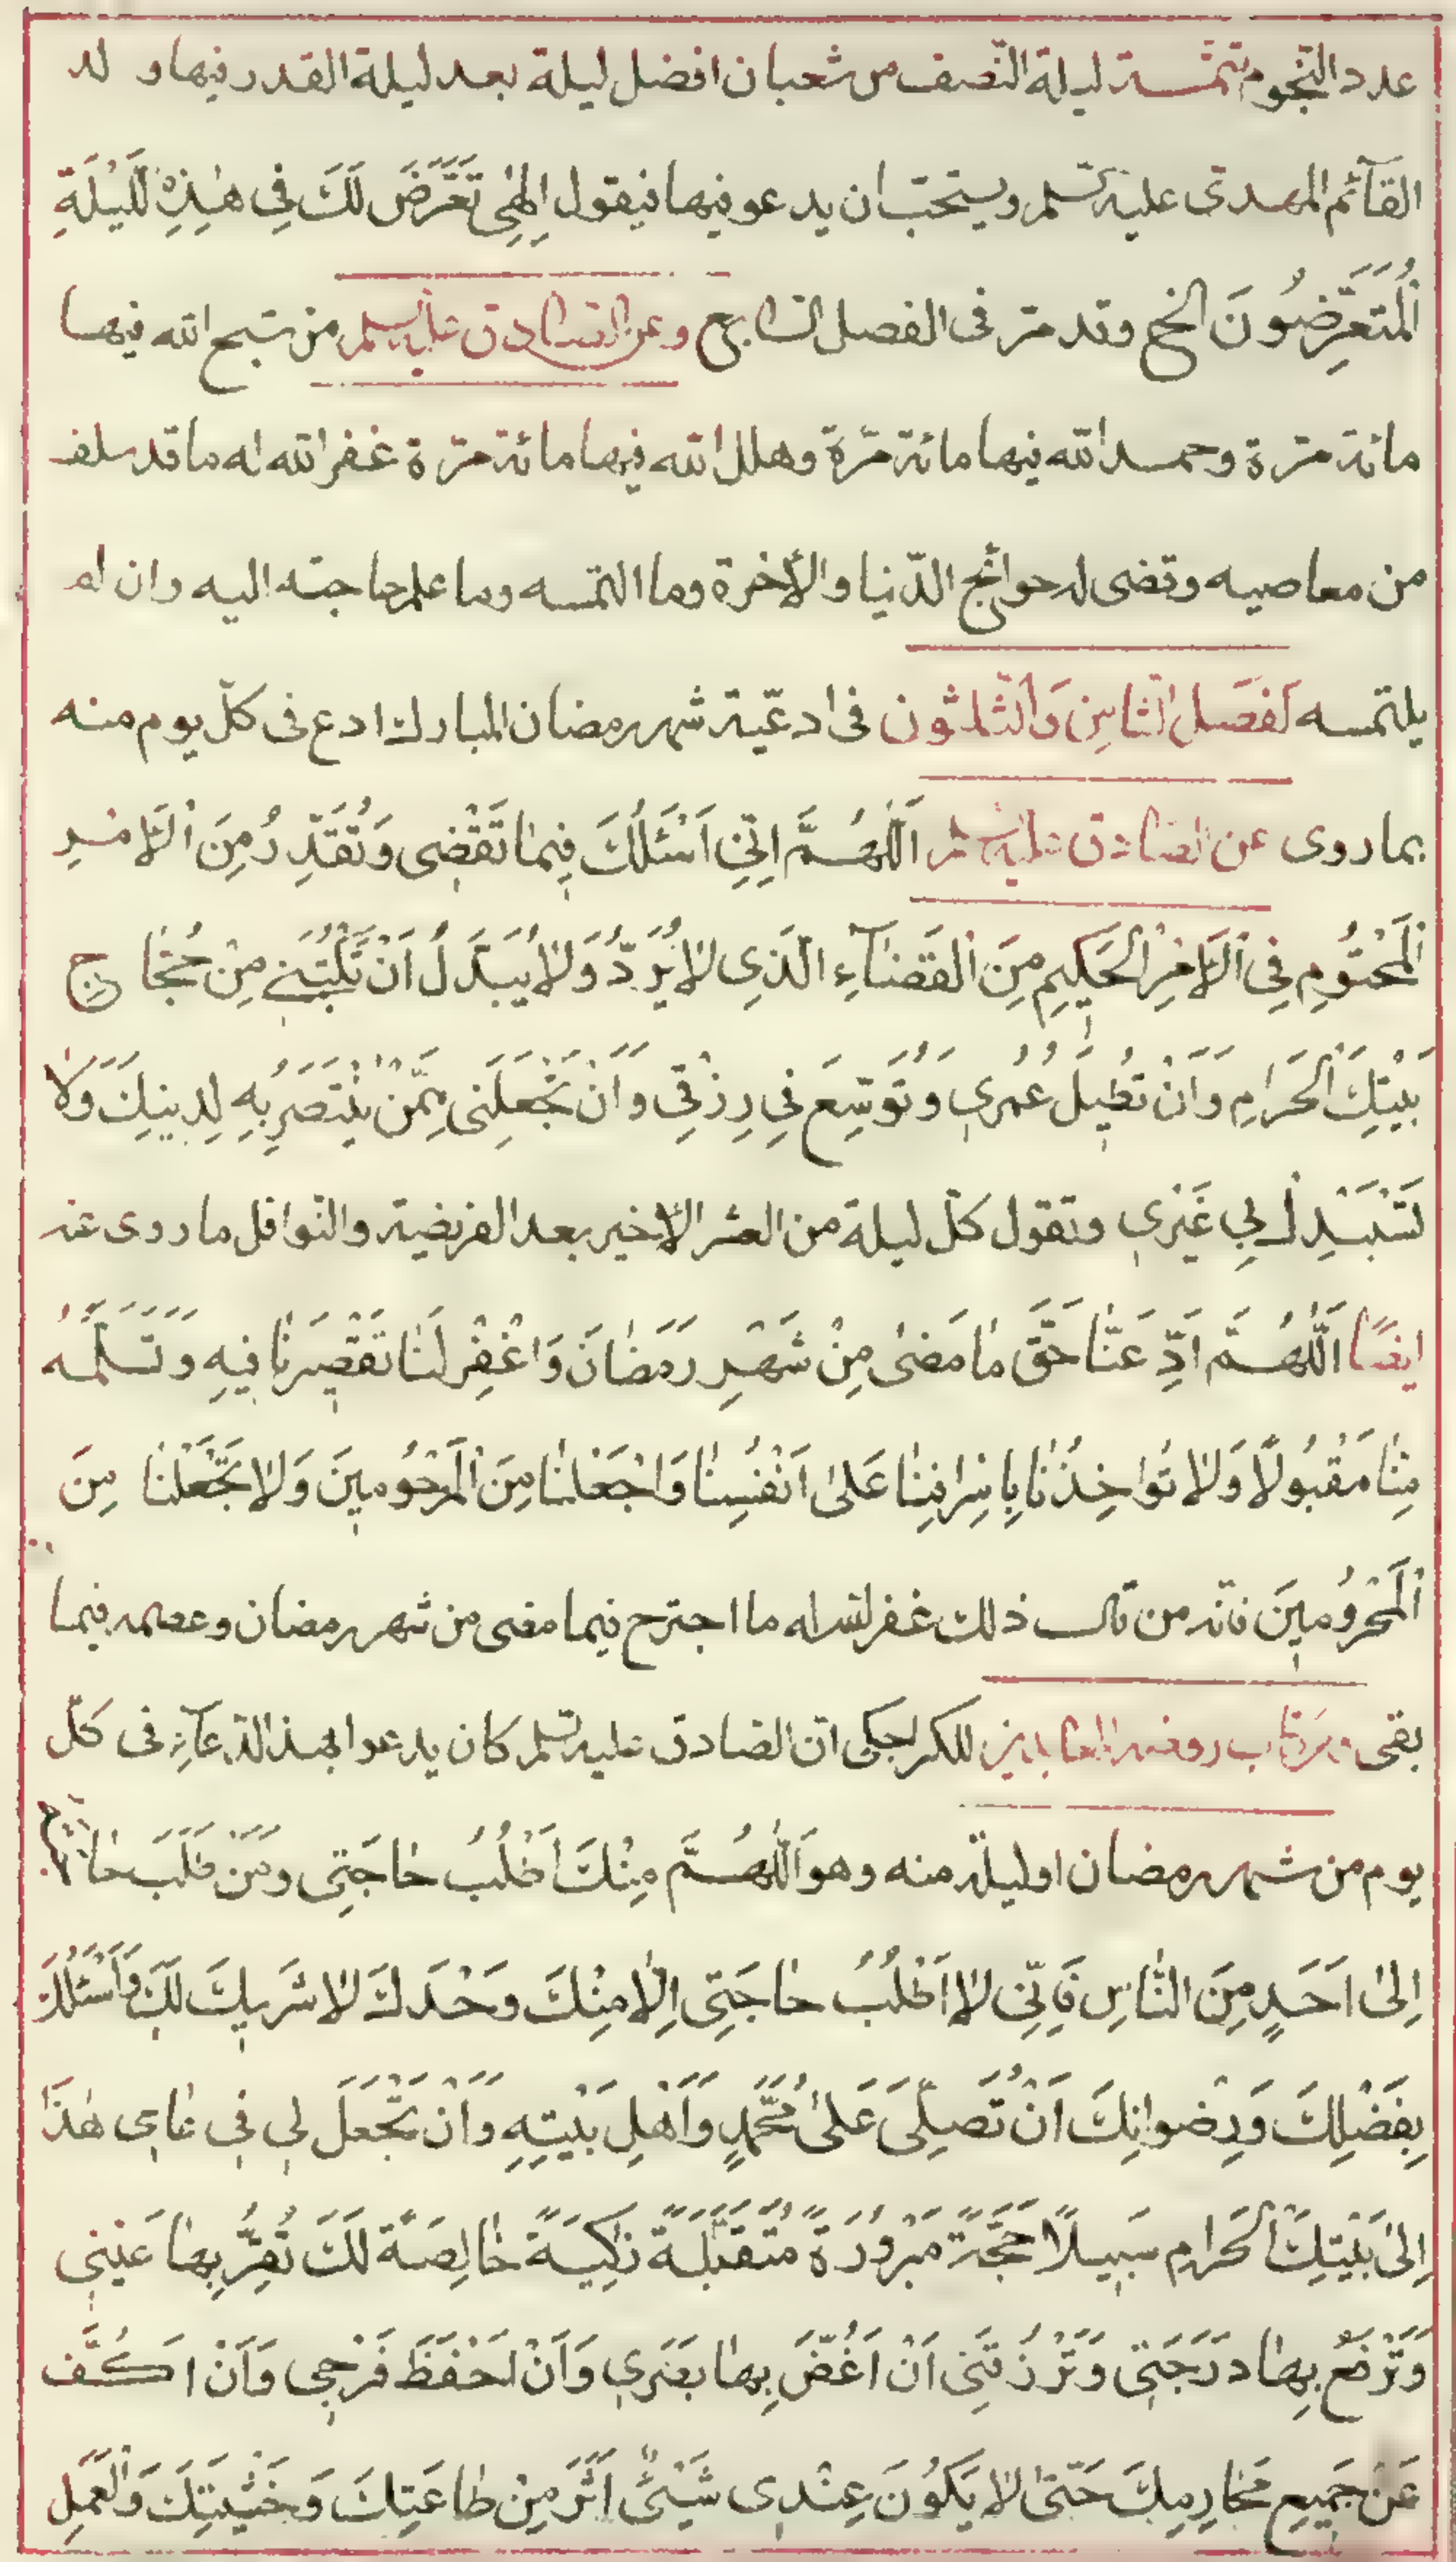 عدد النّجوم تتمّـة ليلة النّصف من شعبان افضل ليلة بعد ليلة القدر فيها ولد
القآئم المهدى عليه السّلم ويستحبّ ان يدعو فيها فيقول اِلٰهِي تَعَرَّضَ لَكَ فِى هٰذِهِ اللَّيْلَةِ
اَلْمُتَعَرِّضُونَ الخ وقد مرّ فى الفصل السّابع وعن الصّادق عليه السلم من سبّح الله فيها
مائة مرّة وحمد الله فيها مائة مرّة وهلل الله فيها مائة مرّة غفر الله له ما قد سلف
من معاصيه وقضى له حوائج الدّنيا والأخرة وما التمسه وما علم حاجته اليه وان لم
يلتمسه اَلفَصل الثّامِن وَالثّلثون فى ادعيّة شهر رمضان المبارك ادع فى كلّ يوم منه
بما روى عن الصّادق عليه السلم اَللّٰهُمَّ اِنّىِ اَسْئَلُكَ فِيمٰا تَقْضِى وَتُقَدِّرُ مِنَ اْلاَمْرِ
اَلْمَحْتُومِ فِى اْلاَمْرِ الْحَكِيمِ مِنَ الْقَضٰآءِ الَّذِى لاٰ يُرَدُّ وَلاٰ يُبَدَّلُ اَنْ تَكْتُبَنِى مِنْ حُجّٰاجِ
بَيْتِكَ الْحَرَامِ وَاَنْ تُطِيلَ عُمُرِى وَتُوَسِّعَ فِى رِزْقِى وَاَنْ تَجْعَلَنِى مِمَّنْ تَنْتَصِرُ بِهِ لِدِينِكَ وَلاٰ
تَسْتَبْدِلْ بِي غَيْرِى وتقول كلّ ليلة من العشر الأخير بعد الفريضة والنّوافل ما روى عنه
ايضًا اَللّٰهُمَّ اَدِّ عَنّٰا حَقَّ مٰا مَضىٰ مِنْ شَهْرِ رَمَضٰانَ وَاغْفِرْ لَنٰا تَقْصِيرَنٰا فِيهِ وَتَسَلَّمْهُ
مِنّٰا مَقْبُولاً وَلاٰ تُوٰاخِذْنٰا بِاِسْرٰافِنٰا عَلىٰ اَنْفُسِنٰا وَاجْعَلْنٰا مِنَ الْمَرْحُومِينَ وَلاٰ تَجْعَلْنٰا مِنَ
اَلْمَحْرُومِينَ فانّه من قال ذلك غفر الله له ما اجترح فيما مضى من شهر رمضان وعصمه فيما
بقى ومن كتاب روضة العابدين للكراجكى انّ الصّادق عليه السّلم كان يدعوا بهذا الدّعآء فى كلّ
يوم من شهر رمضان او ليلة منه وهو اَللّٰهُمَّ مِنْكَ اَطْلُبُ حٰاجَتِى ومَنْ طَلَبَ حٰاجَةً
اِلىٰ اَحَدٍ مِنَ النّٰاسِ فَاِنّىِ لاٰ اَطْلُبُ حٰاجَتِى اِلّاٰ مِنْكَ وَحْدَكَ لاٰ شَرِيكَ لَكَ وَاَسْئَلُكَ
بِفَضْلِكَ وَرِضْوانِكَ اَنْ تُصَلِّىَ عَلىٰ مُحَمَّدٍ وَاَهْلِ بَيْتِهِ وَاَنْ تَجْعَلَ لِى فِى عٰامِى هٰذَا
اِلىٰ بَيْتِكَ الْحَرامِ سَبِيلاً حَجَّةً مَبْرُورَةً مُتَقَبَّلَةً زٰكِيَةً خٰالِصَةً لَكَ تُقِرُّ بِهٰا عَيْنِى
وَتَرْفَعُ بِهٰا دَرَجَتِى وَتَرْزُقَنِى اَنْ اَغُضَّ بِهٰا بَصَرِى وَاَنْ اَحْفَظَ فَرْجِى وَاَنْ اَكُفَّ
عَنْ جَمِيعِ مَحٰارِمِكَ حَتّىٰ لاٰ يَكُونَ عِنْدِى شَيْئٌ اٰثَرَ مِنْ طٰاعَتِكَ وَخَشْيَتِكَ وَالْعَمَلِ